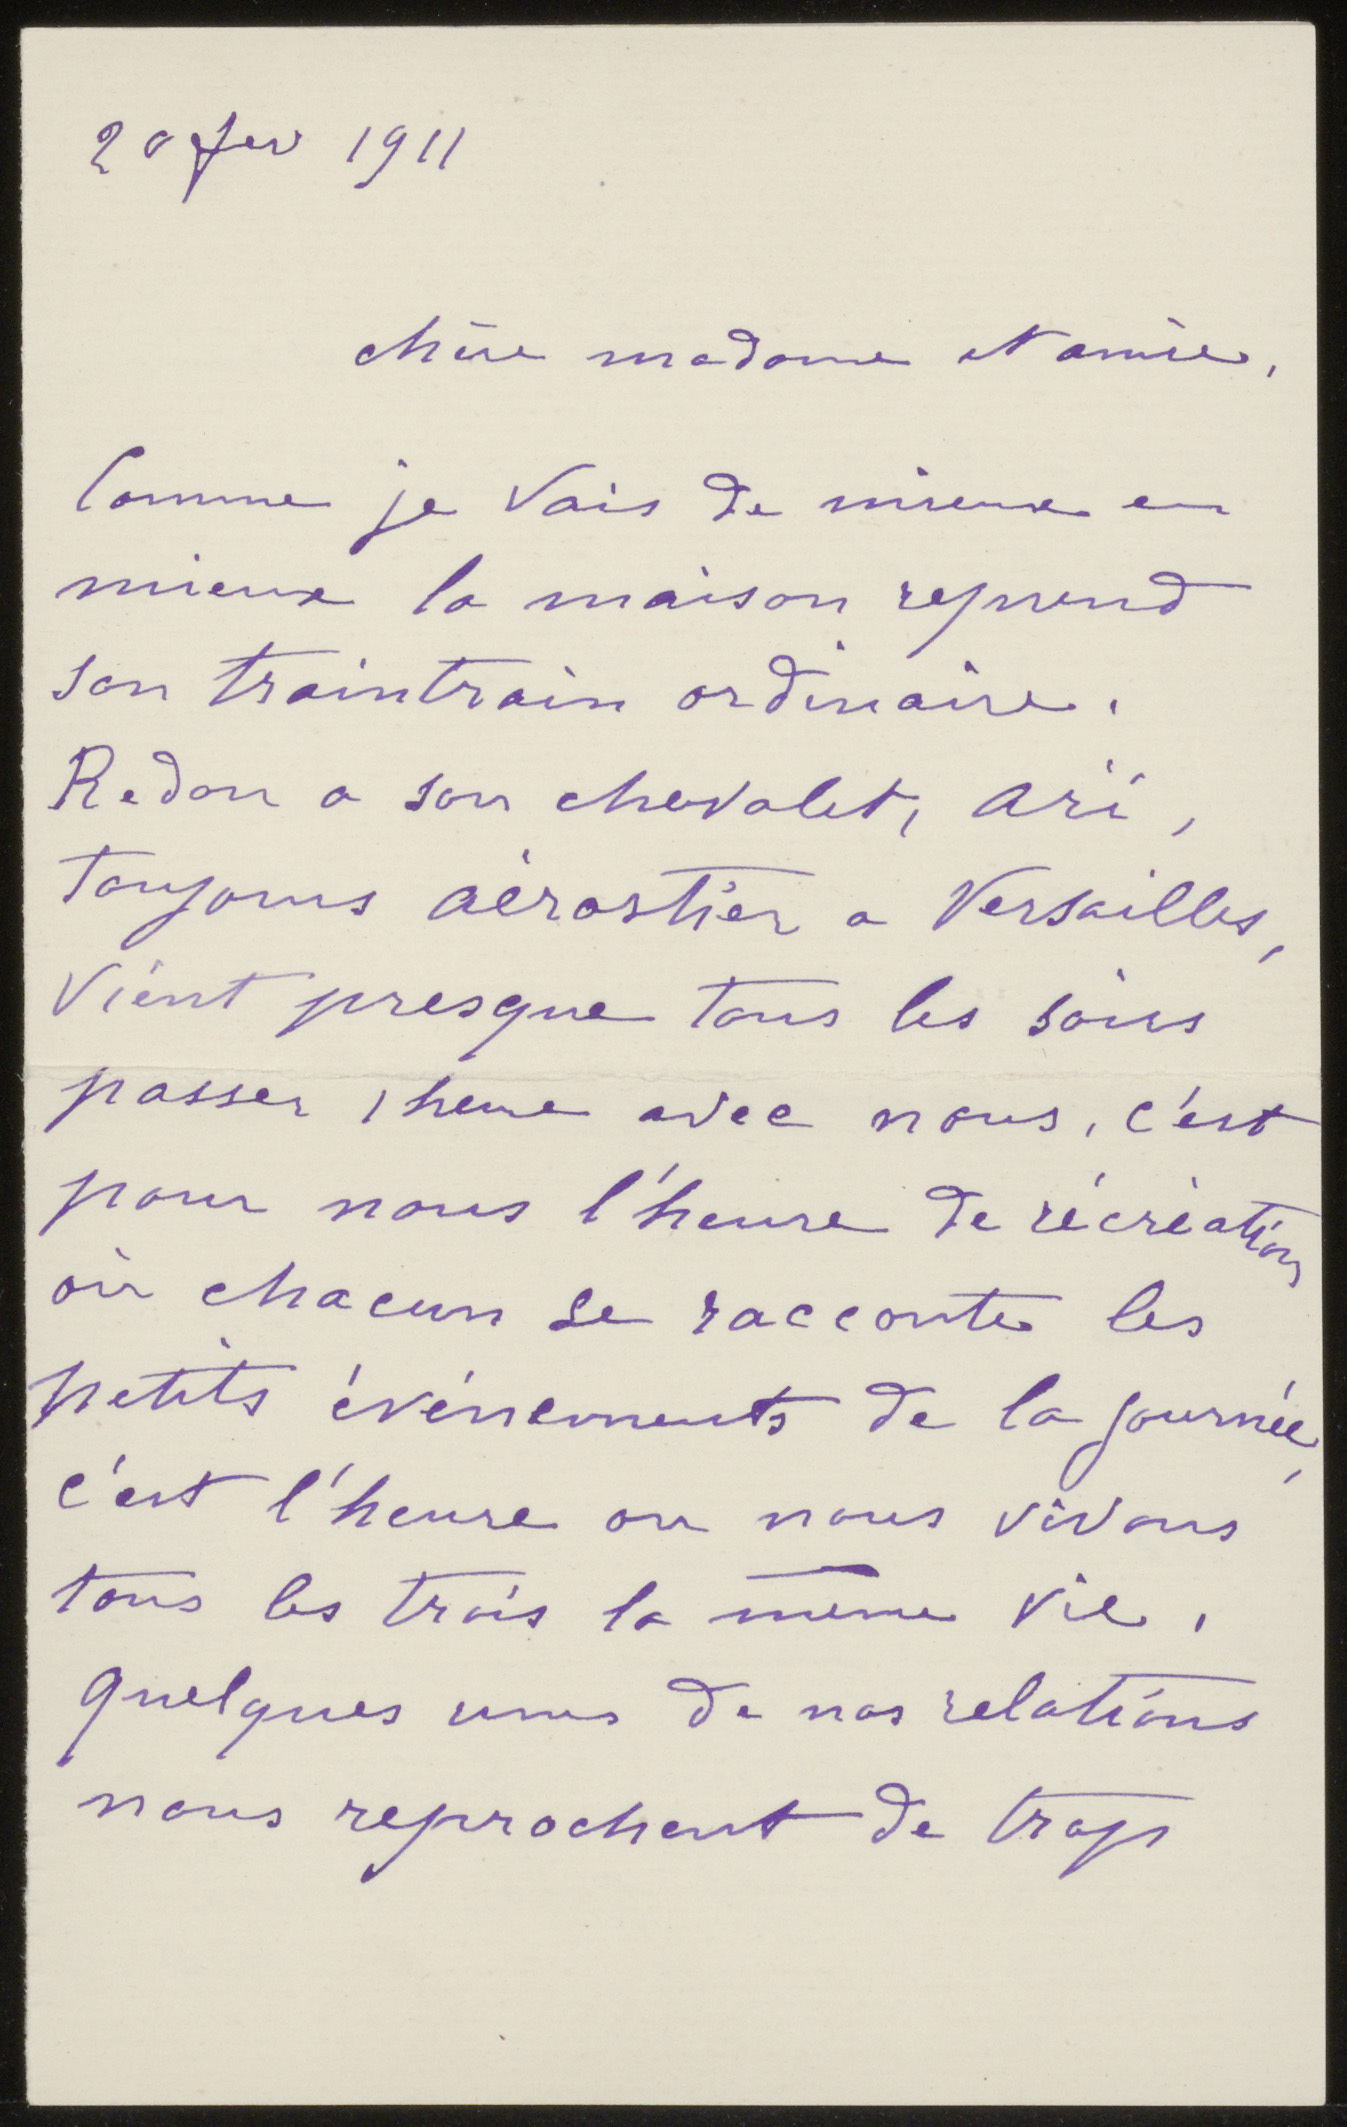 20 fev 1911
chère madame et amie,
Comme je vais de mieux en
mieux la maison reprend
son traintrain ordinaire.
Redon a son chevalet, Ari,
toujours aérostier a Versailles,
vient presque tous les soirs
passer 1 heure avec nous, c'est
pour nous l'heure de récréation
où chacun se racconte les
petits événements de la journée,
c'est l'heure ou nous vivons
tous les trois la même vie.
quelques unes de nos relations
nous reprochent de trop